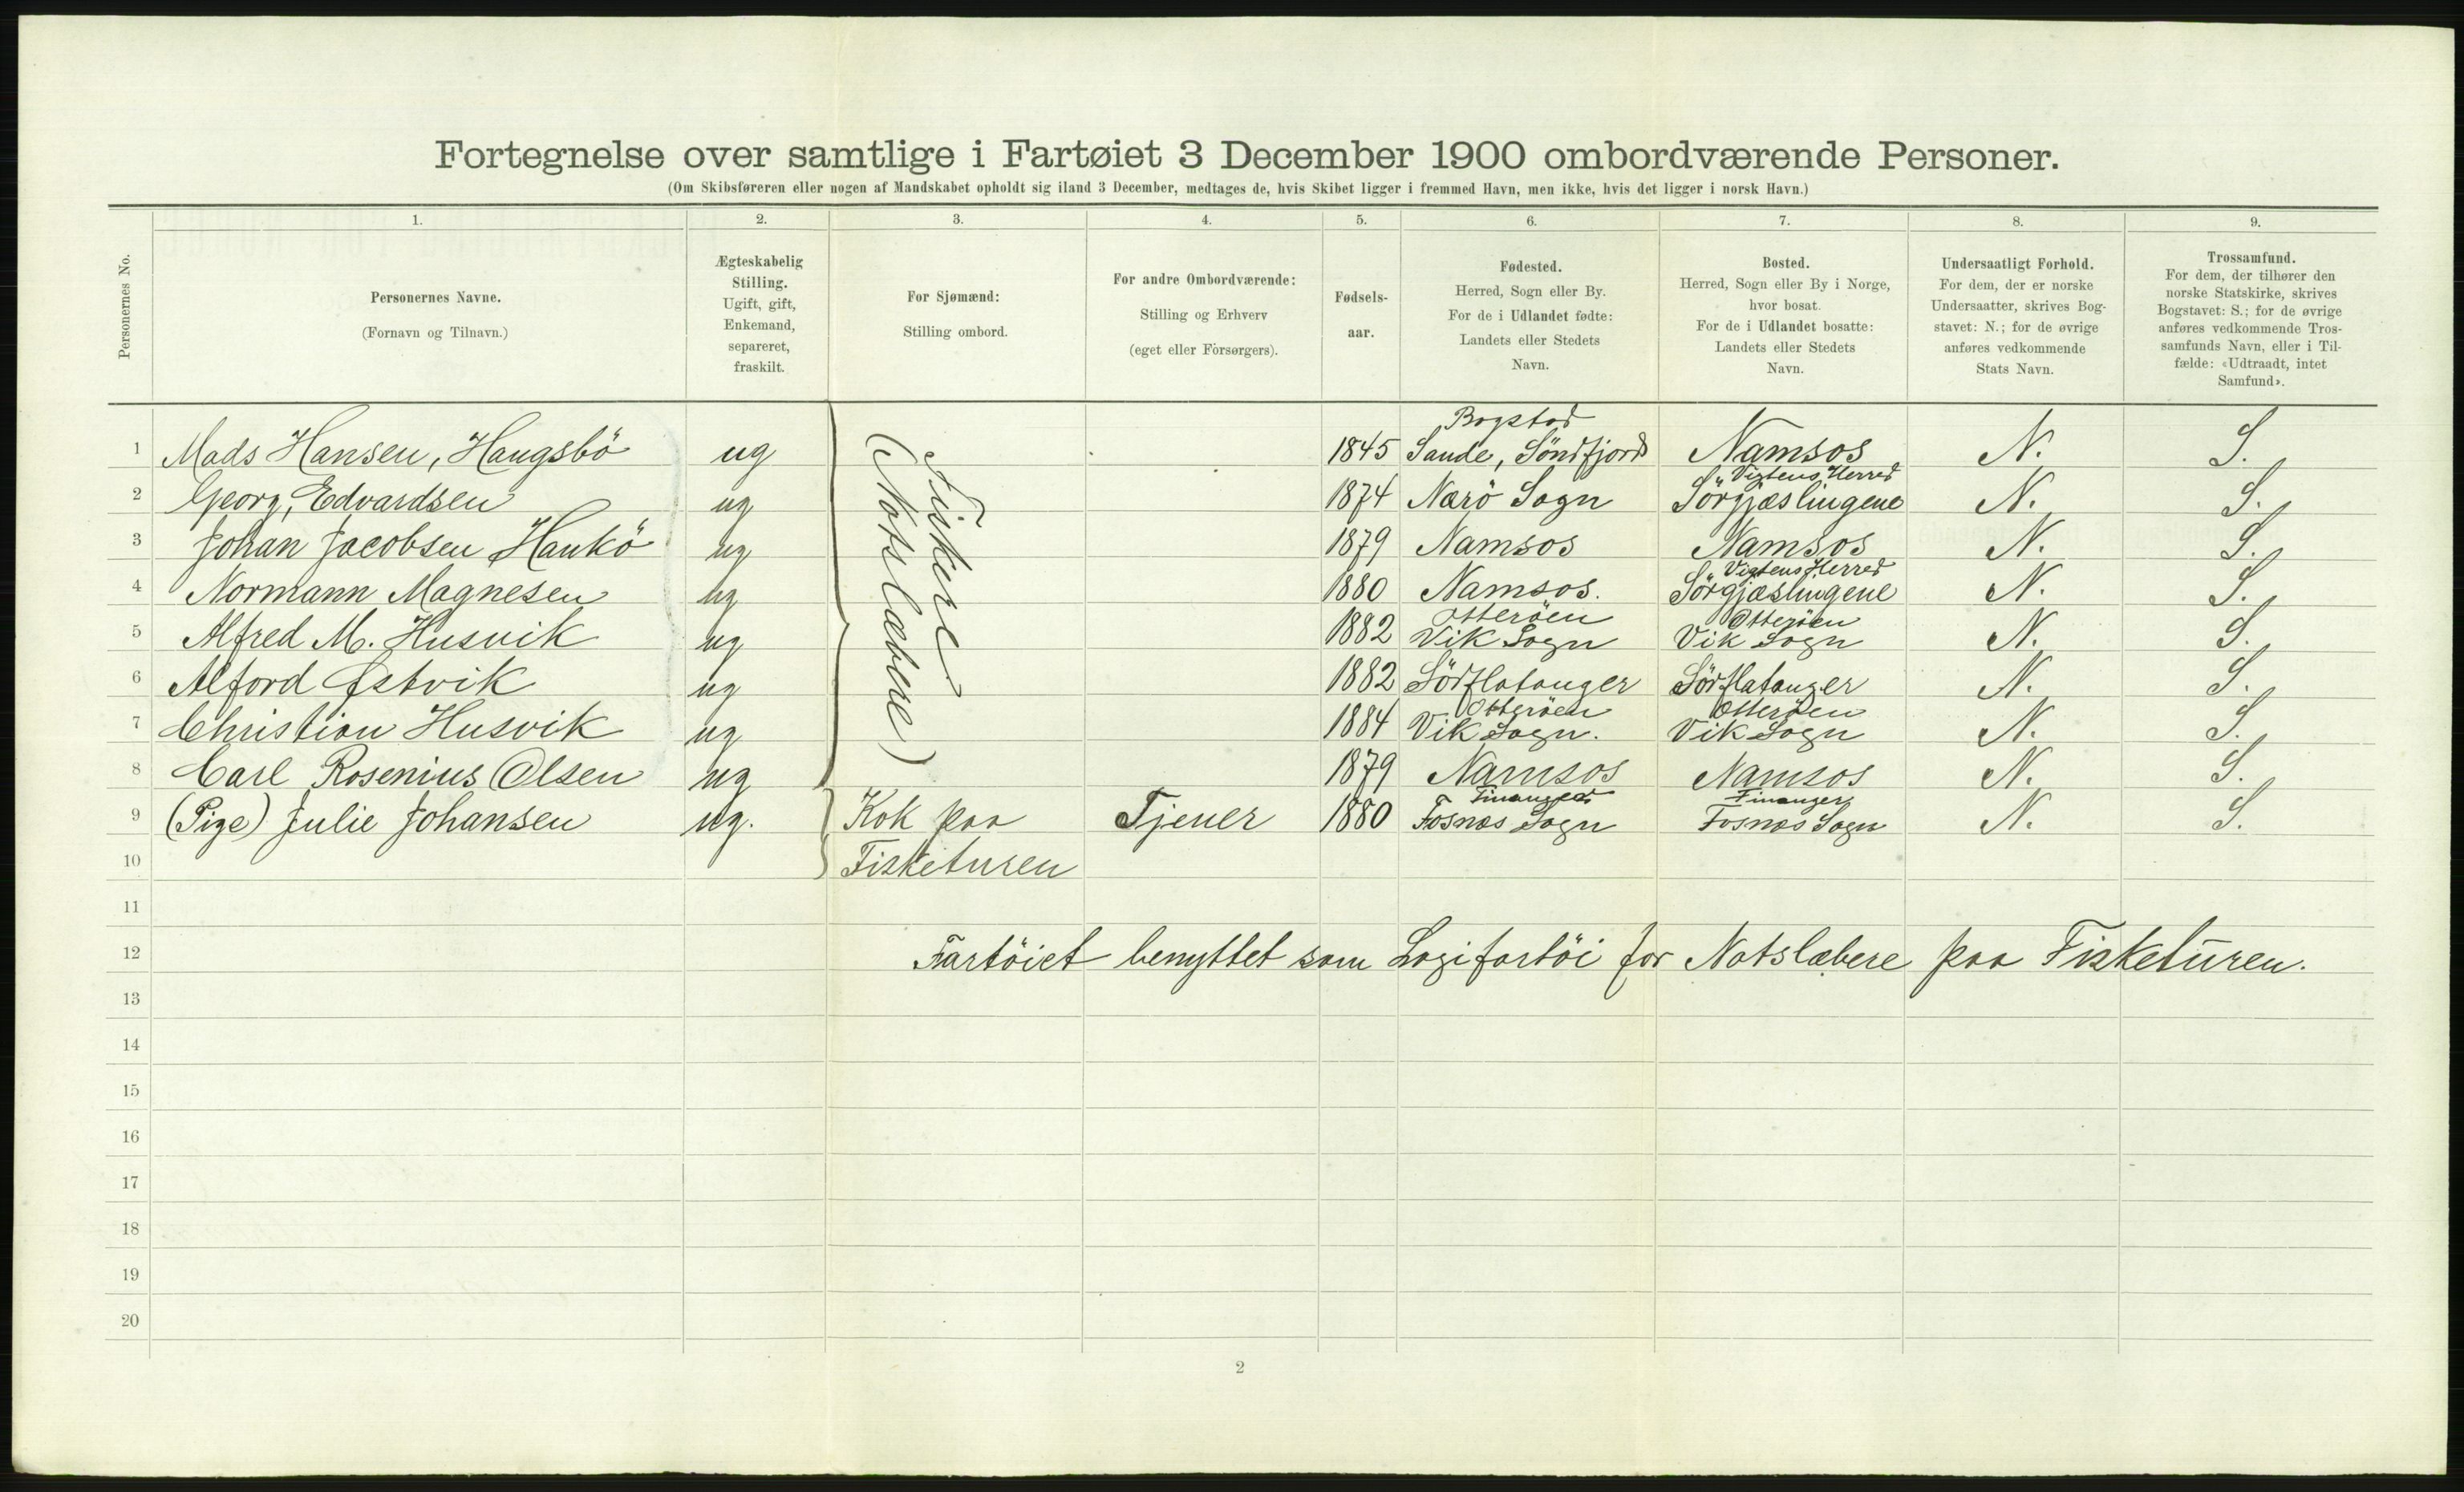 Fortegnelse over samtlige i Fartøiet 3 December 1900 ombordværende Personer.
(Om Skibsføreren eller nogen af Mandskabet opholdt sig iland 3 December, medtages de, hvis Skibet ligger i fremmed Havn, men ikke, hvis det ligger i norsk Havn.)
Personernes No.
1.
Personernes Navne.
(Fornavn og Tilnavn.)
2.
Ægteskabelig
Stilling.
Ugift, gift,
Enkemand,
separeret,
fraskilt.
3.
For Sjømænd:
Stilling ombord.
4.
For andre Ombordværende:
Stilling og Erhverv
(eget eller Forsørgers).
5.
Fødsels-
aar.
6.
Fødested.
Herred, Sogn eller By.
For de i Udlandet fødte:
Landets eller Stedets
Navn.
7.
Bosted.
Herred, Sogn eller By i Norge,
hvor bosat.
For de i Udlandet bosatte:
Landets eller Stedets
Navn.
8.
Undersaatligt Forhold.
For dem, der er norske
Undersaatter, skrives Bog-
stavet: N.; for de øvrige
anføres vedkommende
Stats Navn.
9.
Trossamfund.
For dem, der tilhører den
norske Statskirke, skrives
Bogstavet: S.; for de øvrige
anføres vedkommende Tros-
samfunds Navn, eller i Til-
fælde: «Udtraadt, intet
Samfund».
Fiskere
(Notslæbere)
Bogstad
1 Mads Hansen, Haugsbö ug 1845 Sande, Söndfjord Namsos N. S.
Vigtens Herred
2 Georg, Edvardsen ug 1874 Nærö Sogn Sörgjæslingene N. S.
3 Johan Jacobsen Haukö ug 1879 Namsos Namsos N. S.
Vigtens Herred
4 Normann Magnesen ug 1880 Namsos. Sörgjæslingene N. S.
Otteröen Otteröen
5 Alfred M. Husvik ug 1882 Vik Sogn Vik Sogn N. S.
6 Alford Østvik ug 1882 Sörflatanger Sörflatanger N. S.
Otteröen Otteröen
7 Christian Husvik ug 1884 Vik Sogn. Vik Sogn N. S.
8 Carl Rosenius Olsen ug 1879 Namsos Namsos N. S.
Finanger Finanger
9 (Pige) Julie Johansen ug. Kok paa Tjener 1880 Fosnæs Sogn Fosnæs Sogn N. S.
10 Fisketuren
11
12 Fartöiet benyttet som Logifartöi for Notslæbere paa Fisketuren.
13
14
15
16
17
18
19
20
2